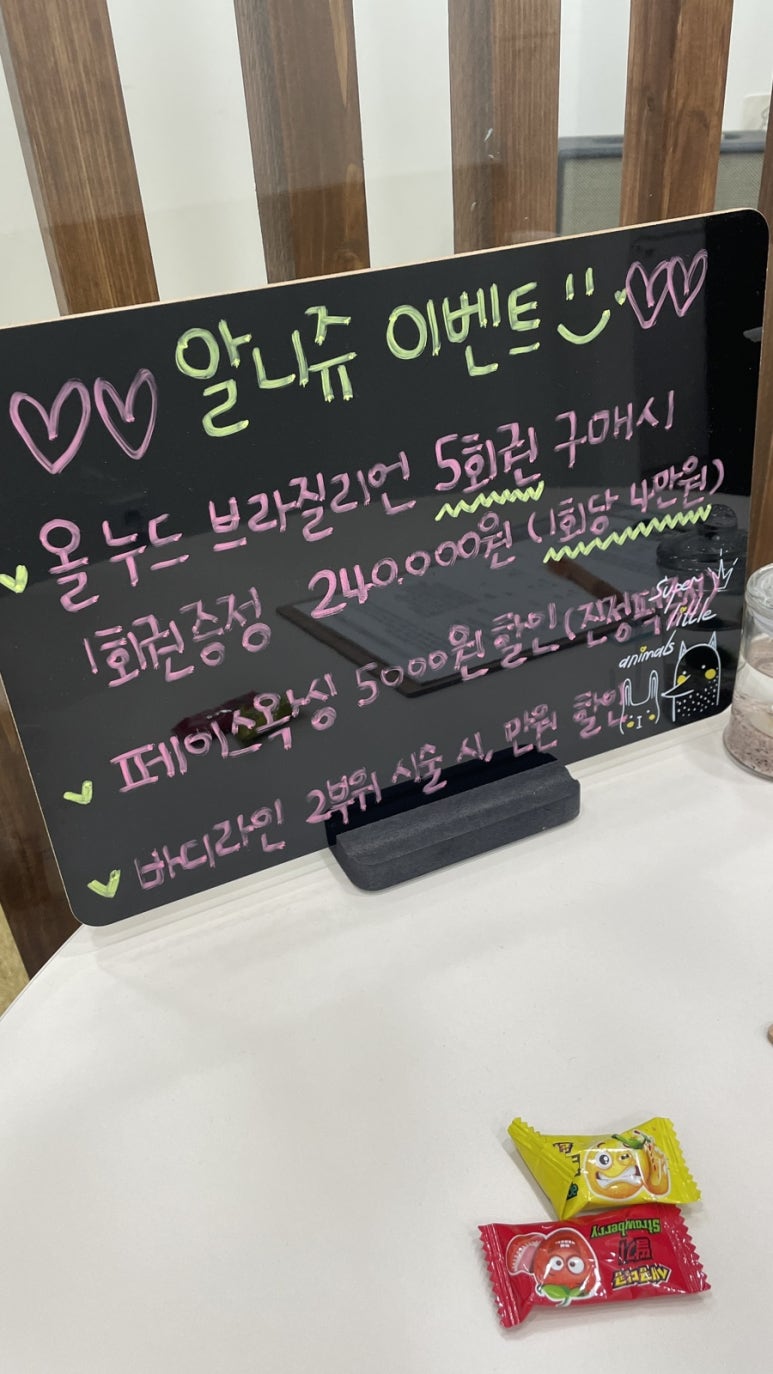 알니쥬 이벤트
올 누드 브라질리언 5회권 구매시
1회권증정 240,000원 (1회당 4만원)
페이스왁싱 5000원 할인 (진정팩포함)
바디라인 2부위 시술 시, 만원 할인
Super
little
animals
Strawberry